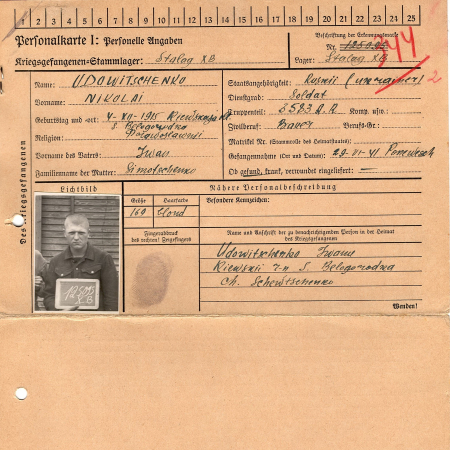 1 2 3 4 5 6 7 8 9 10 11 12 13 14 15 16 17 18 19 20 21 22 23 24 25
Personalkarte I: Personelle Angaben
Beschriftung der Erkennungsmarke
Nr.
744
Kriegsgefangenen-Stammlager: Stalag XB
Lager: Stalag XB
Des Kriegsgefangenen
Name: UDOWITSCHENKO
Vorname: NIKOLAI
Geburtstag und -ort: 4-XII-1915
S. Belogorodka
Religion:
Vorname des Vaters: Iwan
Familienname der Mutter: Timotschenko
Staatsangehörigkeit: (ukrainer) 2
Dienstgrad: Soldat
Truppenteil: Komp. usw.:
Zivilberuf: Bauer Berufs-Gr.:
Matrikel Nr. (Stammrolle des Heimatstaates):
Gefangennahme (Ort und Datum):
Ob gesund, krank, verwundet eingeliefert: —
Lichtbild
Nähere Personalbeschreibung
Größe Haarfarbe
169 blond
Besondere Kennzeichen:
Fingerabdruck
des rechten! Zeigefingers
Name und Anschrift der zu benachrichtigenden Person in der Heimat
des Kriegsgefangenen
Udowitschenko Iwan
Kiewskii r-n S. Belogorodka
Ch. Schewtschenko
X B
Wenden!